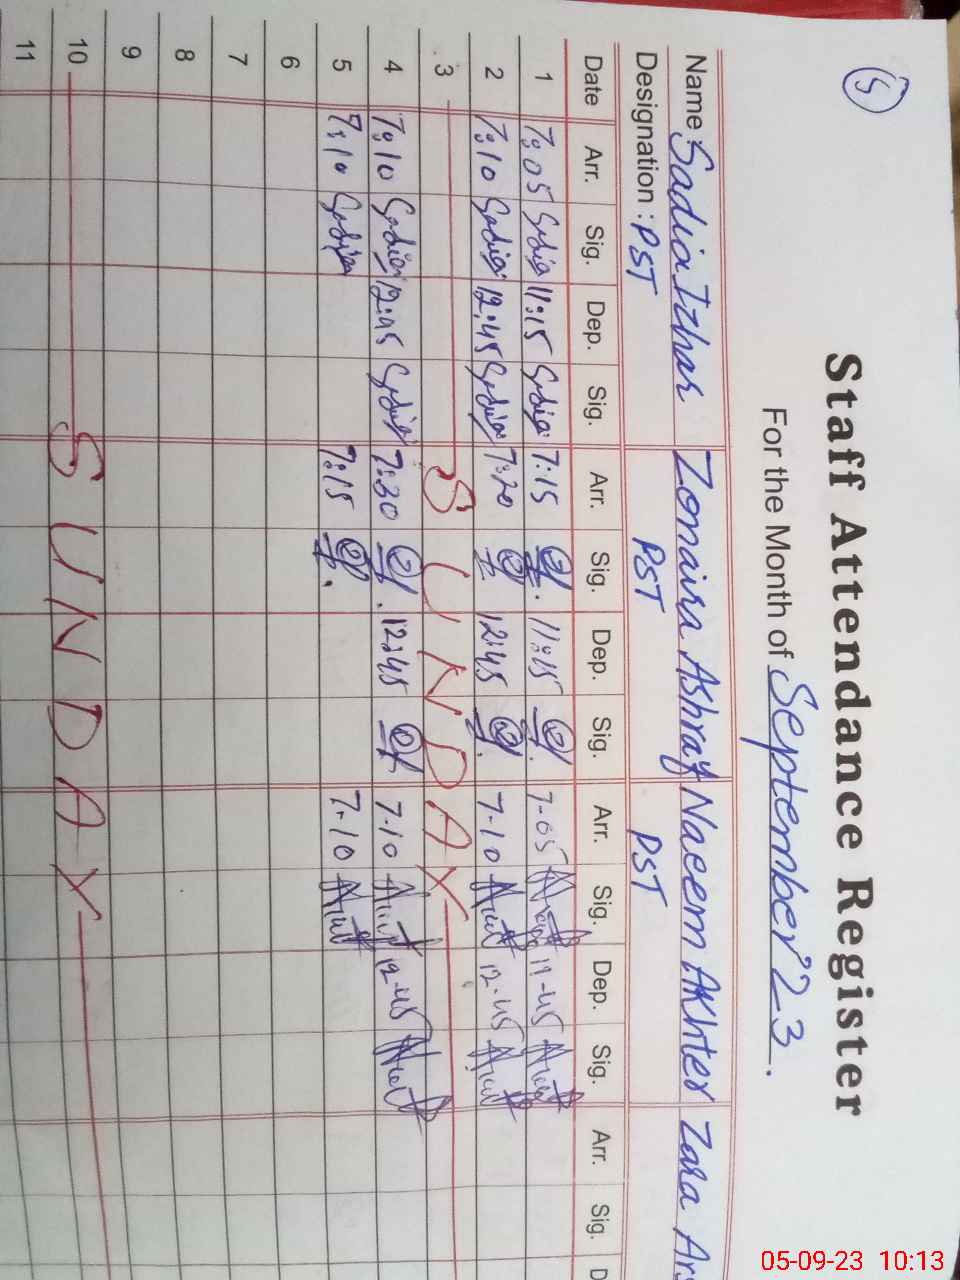 5
Staff Attendance Register
For the Month of September 23.
Name : Sadia Izhar Zonaira Ashraf Naeem Akhter Zara
Designation : PST PST PST
Date Arr. Sig. Dep. Sig. Arr. Sig. Dep. Sig. Arr. Sig. Dep. Sig. Arr. Sig. D
1 7:05 Sadia 11:15 Sadia 7:15 11:15 7-05
2 7:10 Sadia 12:45 Sadia 7:20 12:45 7-10 12-45
3 SUNDAY
4 7:10 Sadia 12:45 Sadia 7:30 12:45 7-10 12-45
5 7:10 Sadia 7:15 7-10
6
7
8
9
10 SUNDAY
11
05-09-23 10:13